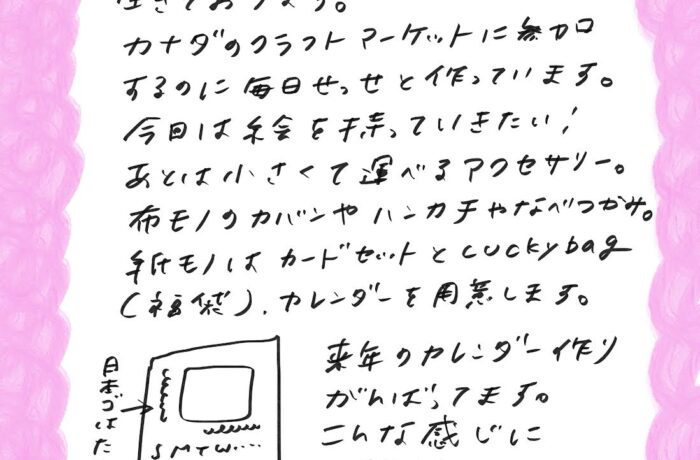 生きております。
カナダのクラフトマーケットに参加
するのに毎日せっせと作っています。
今回は絵を持っていきたい!
あとは小さくて運べるアクセサリー。
布モノのカバンやハンカチやなべつかみ。
紙モノはカードセットとluckybag
(福袋).カレンダーを用意します。
日本ゴはた
SMTW....
来年のカレンダー作り
がんばってます。
こんな感じに